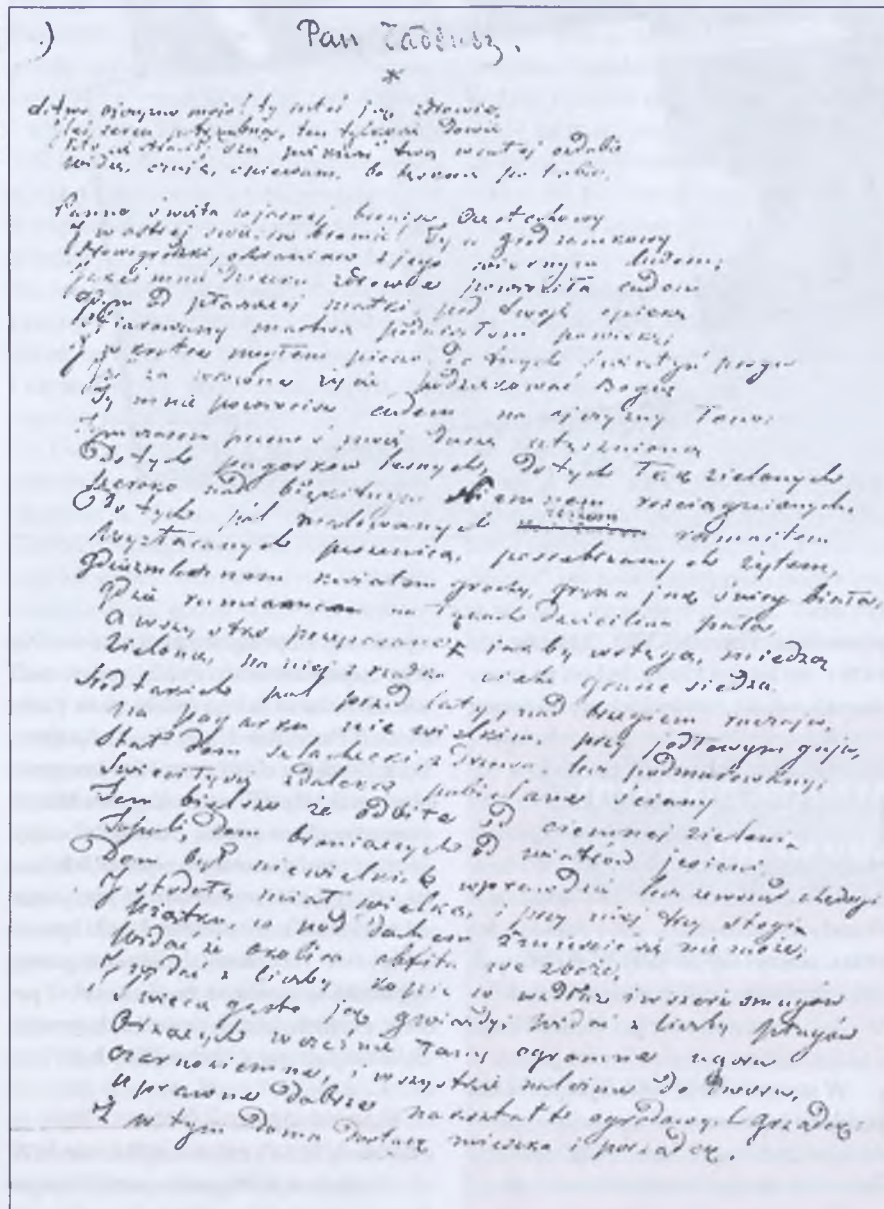 Pan Tadeusz.
*
Litwo ojczyzno moja! ty jesteś jak zdrowie
ten tylko się dowie
Kto cię stracił. Dziś piękność twą w całej ozdobie
Widzę, bo po tobie.
Panno Święta co jasnej bronisz Częstochowy
I w ostrej świecisz bramie! Ty co gród zamkowy
Nowogródzki, ochraniasz z jego wiernym ludem;
Jakeś mnie dziecko zdrowiu powróciła cudem
Gdym od płaczącej matki, pod twoję opiekę
Ofiarowany martwą podniosłem powiekę;
I zaraz mogłem pieszo do twych świątyń progu
Iść za wrócone życie podziękować Bogu
Ty mnie powrócisz cudem na ojczyzny łono:
Tymczasem przenoś moją duszę utęsknioną
Do tych pagórków leśnych, Do tych łąk zielonych
Szeroko nad błękitnym Niemnem rościągnionych.
Do tych pól malowanych zbożem rozmaitem
Wyzłacanych pszenicą, posrebrzanych żytem,
kwiatem gryka jak śnieg biała,
Gdzie rumieńcem dzięcielina pała
A wszystko przepasane jakby wstęgą, miedzą
Zieloną, na niej z rzadka grusze siedzą.
Śród takich pól przed laty, nad brzegiem ruczaju,
Na pagórku niewielkim, przy jodłowym gaju,
Stał dom szlachecki, z drzewa lecz podmurowany;
Świeciły się z daleka pobielane ściany
Tem bielsze że odbite od ciemnej zieleni
Topoli, Dom broniących od wiatrów jesieni.
Dom był niewielki, wprawdzie lecz zewsząd chędogi
I stodołę miał wielką, i przy niej trzy stogi
Użątku co pod dachem zmieścić się nie może;
Widać że okolica obfita we zboże;
I widać z liczby kopic co wzdłuż i wszerz smugów
Świecą gęsto jak gwiazdy, widać z liczby pługów
Orzących wcześnie łany ogromne ugoru
Czarnoziemne, i wszystkie należne do Dworu,
Uprawne dobrze na kształt ogrodowych grządek:
I w tym Domu Dostatek mieszka i porządek.